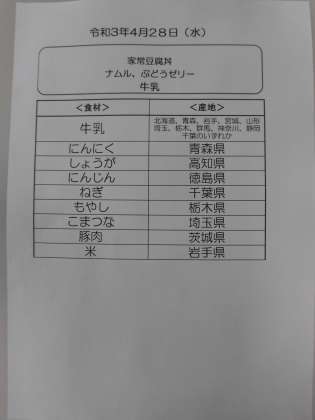 令和3年4月28日（水）
家常豆腐丼
ナムル、ぶどうゼリー
牛乳
＜食材＞ ＜産地＞
牛乳 北海道、青森、岩手、宮城、山形
埼玉、栃木、群馬、神奈川、静岡
千葉のいずれか
にんにく 青森県
しょうが 高知県
にんじん 徳島県
ねぎ 千葉県
もやし 栃木県
こまつな 埼玉県
豚肉 茨城県
米 岩手県